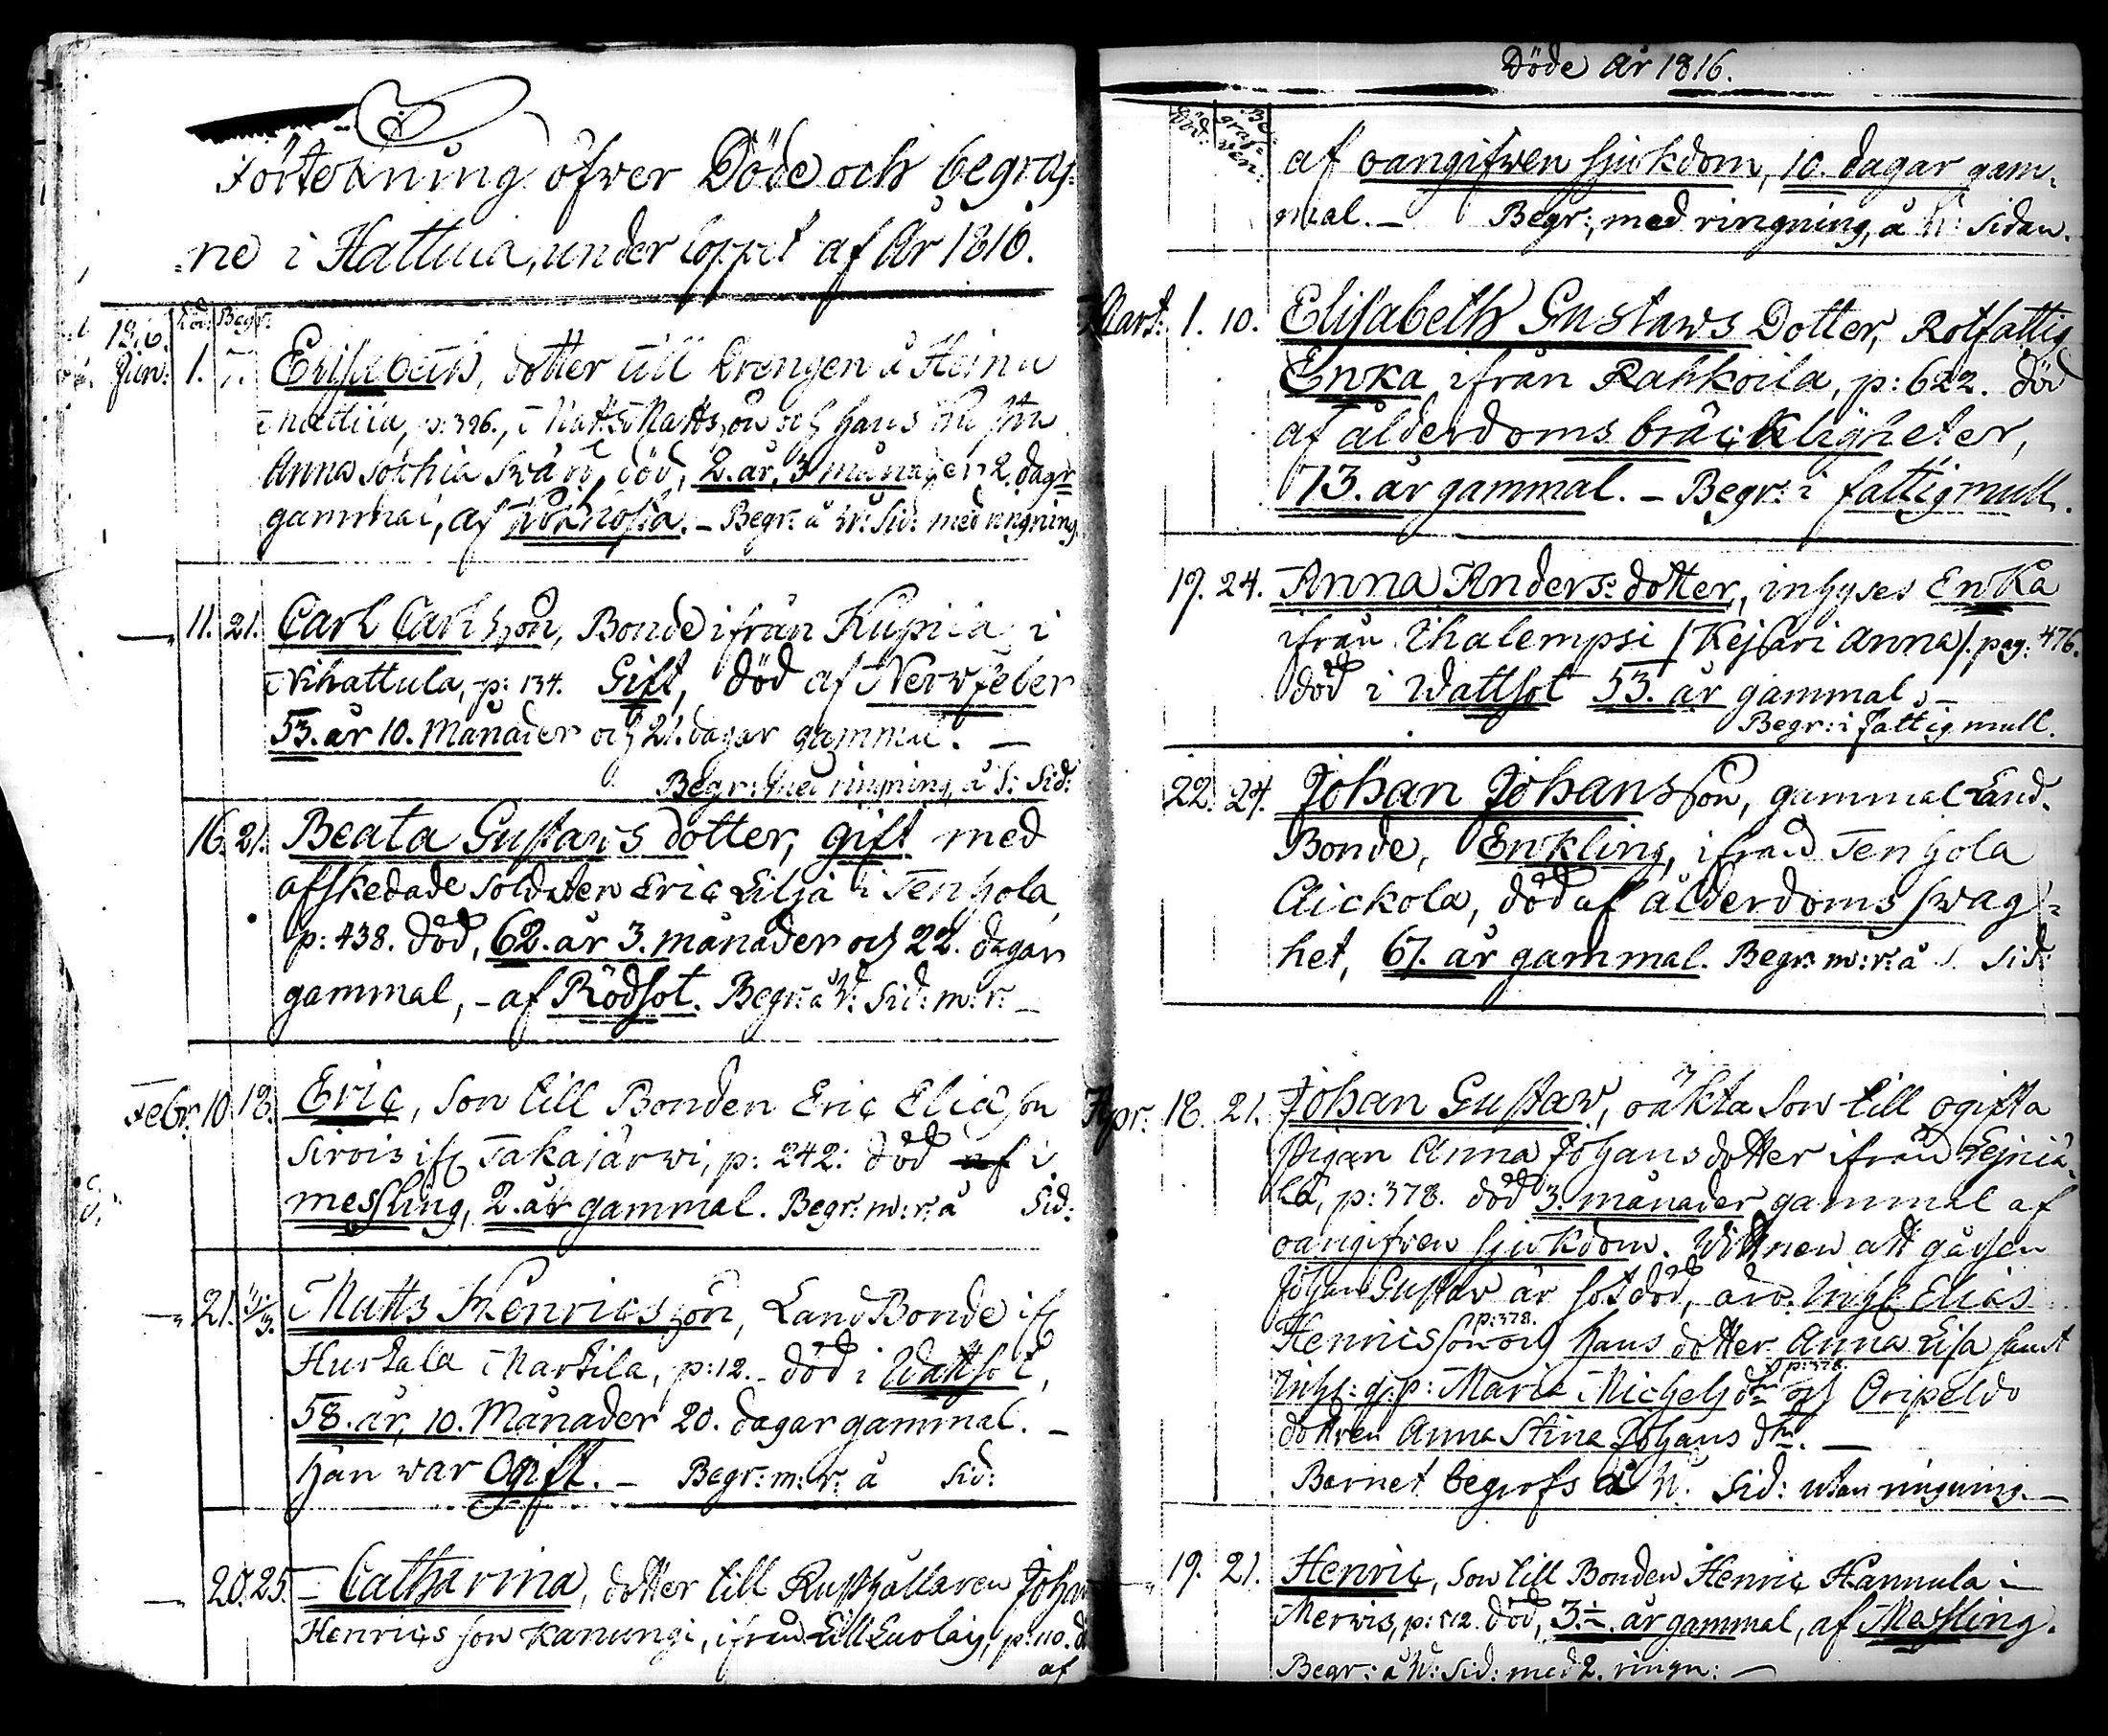 Förtekning öfver Döde och begraf-
ne i Hattula, under loppet af År 1816.
1816. Död: Begr:
Jan: 1. 7. Elisabeth, dotter till Drengen å Heinu
Mattila, p: 326., Matts Mattsson och hans hustru
Anna Sophia Svärd, död, 2. år, 3 månader 2. dagr
gammal, af Kikhosta. – Begr: å N: Sid: med ringning
— 11. 21. Carl Carlsson, Bonde ifrån Kupila i
Nihattula, p: 134. Gift, död af Nervfeber
53. år 10. Månader och 21. dagar gammal. —
Begr: med ringning, å S: Sid:
16. 21. Beata Gustavs dotter, gift med
afskedade Soldaten Eric Lilja i Tenhola
p: 438. död, 62. år 3. månader och 22. dagar
gammal, – af Rödsot. Begr: å N: Sid: m: r: —
Febr. 10 18. Eric, Son till Bonden Eric Eliasson
Sirois ifr Takajärvi, p: 242: död af i
messling, 2. år gammal. Begr: m: r: å Sid:
— 21. 3/3. Matts Henricszon, LandBonde ifr
Hurtala Martila, p: 12. död i Wattsot,
58. år, 10. Månader 20. dagar gammal. –
Han war Ogift. – Begr: m: r: å Sid:
— 20. 25. Catharina, dotter till Rusthållaren Johan
Henrics son Kanungi, ifrån Lill Luolais, p: 110. d
af
Döde År 1816.
Död: Begrafven:
af oangifwen sjukdom, 10. dagar gam-
mal. – Begr:, med ringning, å N: Sidan.
Mart: 1. 10. Elisabeth Gustaws Dotter, Rotfattig
Enka ifrån Rahkoila, p: 622. död
af ålderdoms bräckligheter,
73. år gammal. – Begr: i fattigmull.
19. 24. Anna Anders: dotter, inhyses Enka
ifrån Ihalempsi /Kejsari Anna/. pag: 476.
död i Wattsot 53. år gammal, –
Begr: i fattig mull.
22. 24. Johan Johansson, gammal Land-
Bonde, Enkling, ifrån Tenhola
Aickola, död af ålderdoms swag-
het, 67. år gammal. Begr: m: r: å S. Sid:
Apr: 18. 21. Johan Gustav, oäkta Son till ogifta
Pigan Anna Johansdotter ifrån Lejniä-
lä, p: 378. död 3. månader gammal af
oangifven sjukdom. Vittnen att gåssen
Johan Gustav är sotdöd, äro: Inhs Elias
p: 378.
Henricsson och hans dotter Anna Lisa samt
p: 378.
Inhs: g: p: Maria Michelsdtr och Oripeldo
dottren Anna Stina Johans dtr. —
Barnet begrofs å N. Sid: utan ringning. —
— 19. 21. Henric, Son till Bonden Henric Hannula i
Merwis, p: 512. död, 3½. år gammal, af Messling.
Begr: å N: Sid: med 2. ringn: —